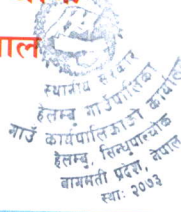 पाल
स्थानीय सरकार
हेलम्बु गाउँपालिका
गाउँ कार्यपालिकाको कार्यालय
हेलम्बु, सिन्धुपाल्चोक
बागमती प्रदेश, नेपाल
स्था: २०७३